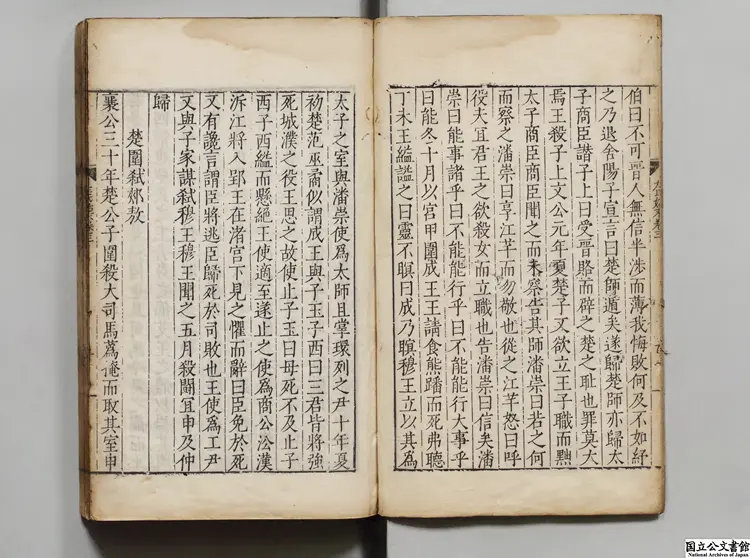 伯曰不可晉人無信半涉而薄我悔敗何及不如紓
之乃退舍陽子宣言曰楚師遁矣遂歸楚師亦歸太
子商臣譖子上曰受晉賂而辟之楚之耻也罪莫大
焉王殺子上文公元年夏楚子又欲立王子職而黜
太子商臣商臣聞之而未察告其師潘崇曰若之何
而察之潘崇曰享江芊而勿敬也從之江芊怒曰呼
役夫宜君王之欲殺女而立職也告潘崇曰信矣潘
崇曰能事諸乎曰不能能行乎曰不能能行大事乎
曰能冬十月以宮甲圍成王王請食熊蹯而死弗聽
丁未王縊謚之曰靈不瞑曰成乃瞑穆王立以其為
太子之室與潘崇使為太師且掌環列之尹十年夏
初楚范巫矞似謂成王與子玉子西曰三君皆將強
死城濮之役王思之故使止子玉曰毋死不及止子
西子西縊而懸絕王使適至遂止之使為商公㳂漢
泝江將入郢王在渚宮下見之懼而辭曰臣免於死
又有讒言謂臣將逃臣歸死於司敗也王使為工尹
又與子家謀弒穆王穆王聞之五月殺鬬宜申及仲
歸
楚圍弒郟敖
襄公三十年楚公子圍殺大司馬蒍掩而取其室申
国立公文書館
National Archives of Japan